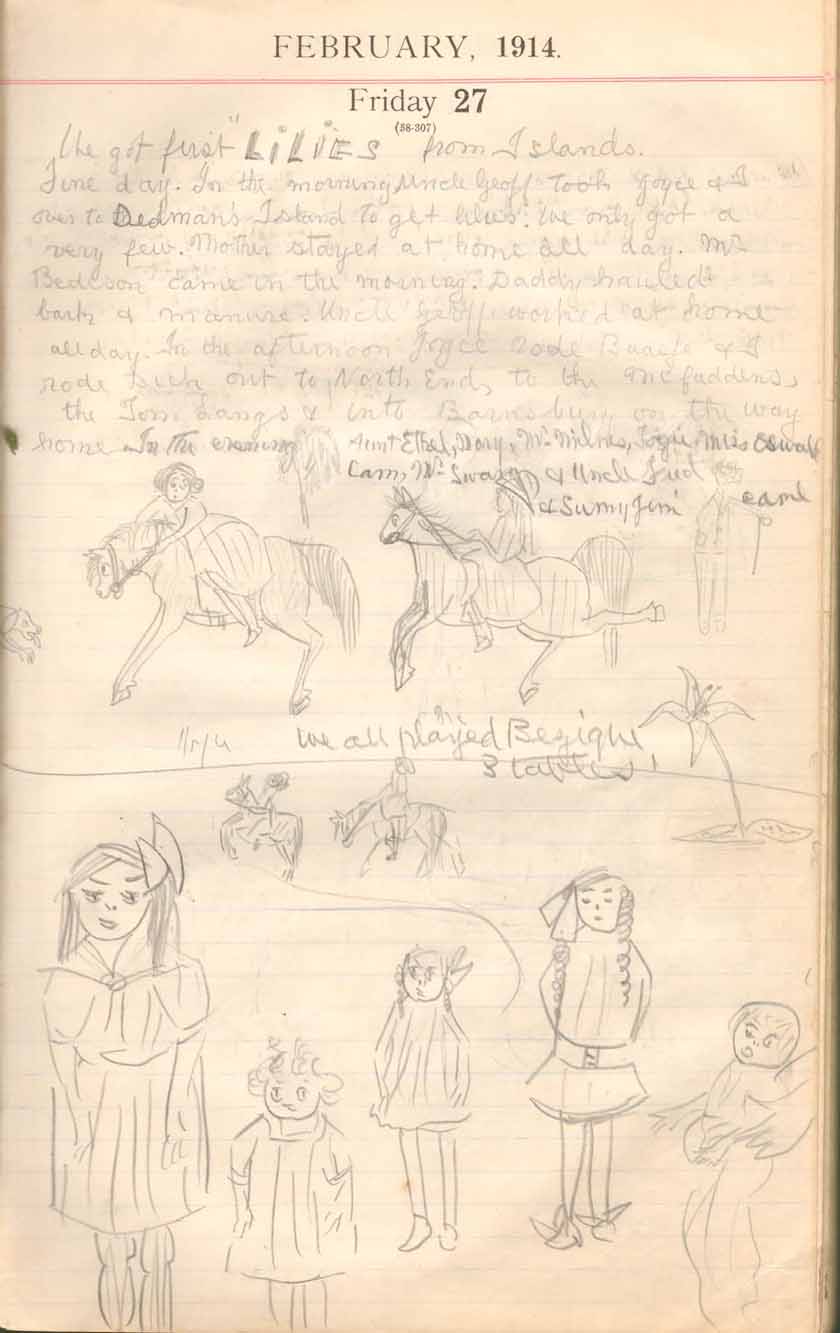 FEBRUARY, 1914.
Friday 27
(58-307)
We got first "LiLiES" from Islands.
Fine day. In the morning Uncle Geoff took Joyce & I
over to Dedman's Island to get lilies. We only got a
very few. Mother stayed at home all day. Mr
came in the morning. Daddy hauled
bark & manure. Uncle Geoff worked at home
all day. In the afternoon Joyce rode & I
rode out to North End, to the Mcfaddens,
the Tom Langs & into Barnsbury on the way
home In the evening Aunt Ethel, Dory, Mr. Milnes, Joyce, Miss
Cam, Mr Swan & Uncle Fred
& Sunny Jim came
we all played Bezique
3 tables!